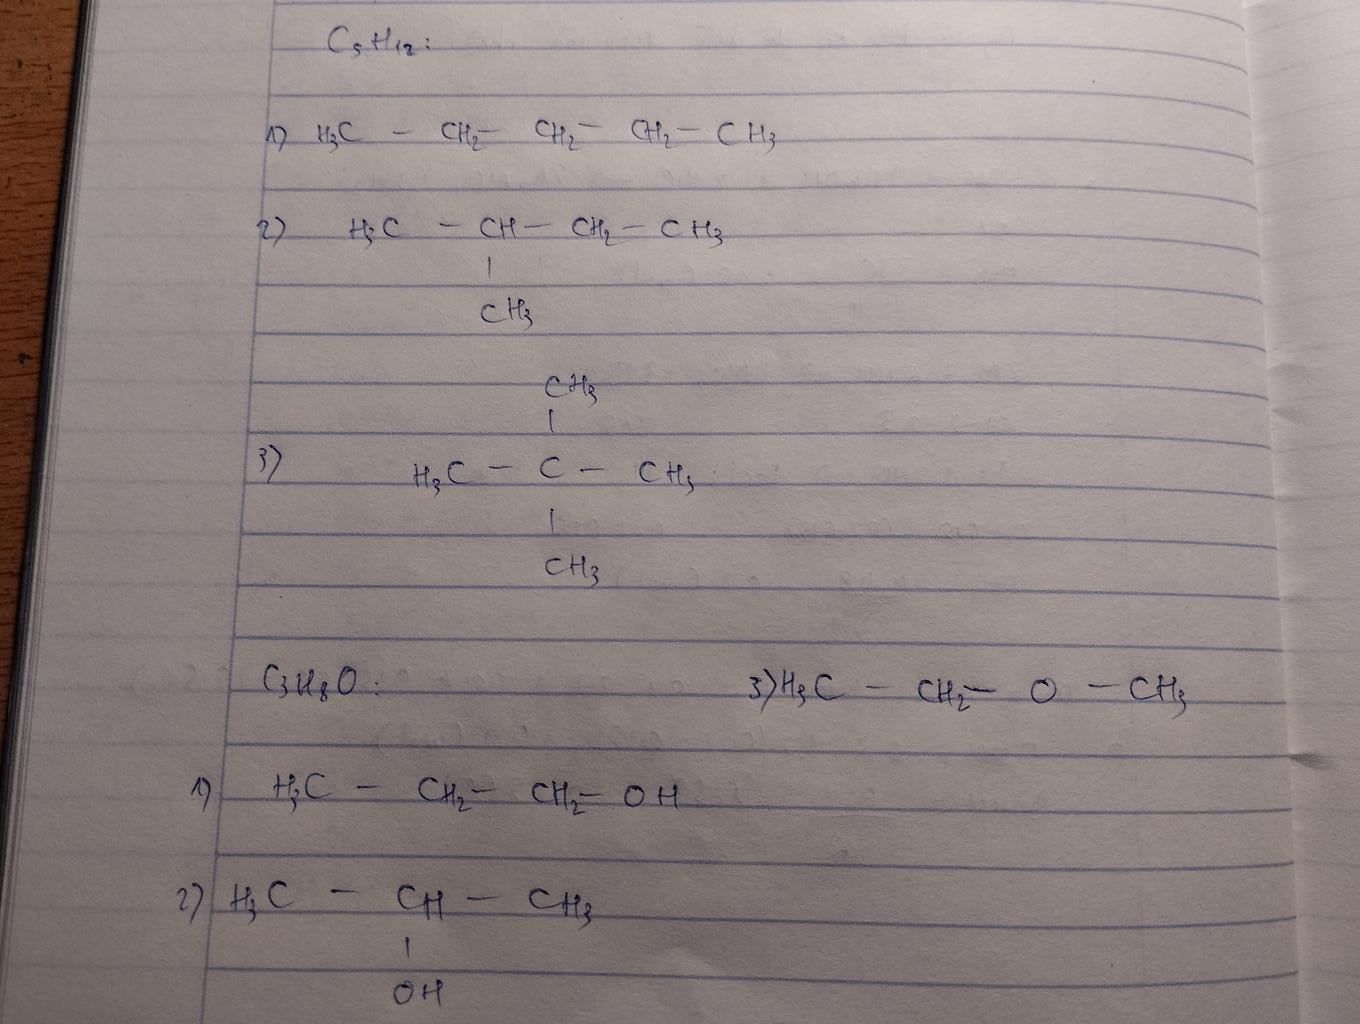 C₅H₁₂:
1) H₃C – CH₂ – CH₂ – CH₂ – CH₃
2) H₃C – CH – CH₂ – CH₃
|
CH₃
CH₃
|
3) H₃C – C – CH₃
|
CH₃
C₃H₈O:
1) H₃C – CH₂ – CH₂ – OH
2) H₃C – CH – CH₃
|
OH
3) H₃C – CH₂ – O – CH₃